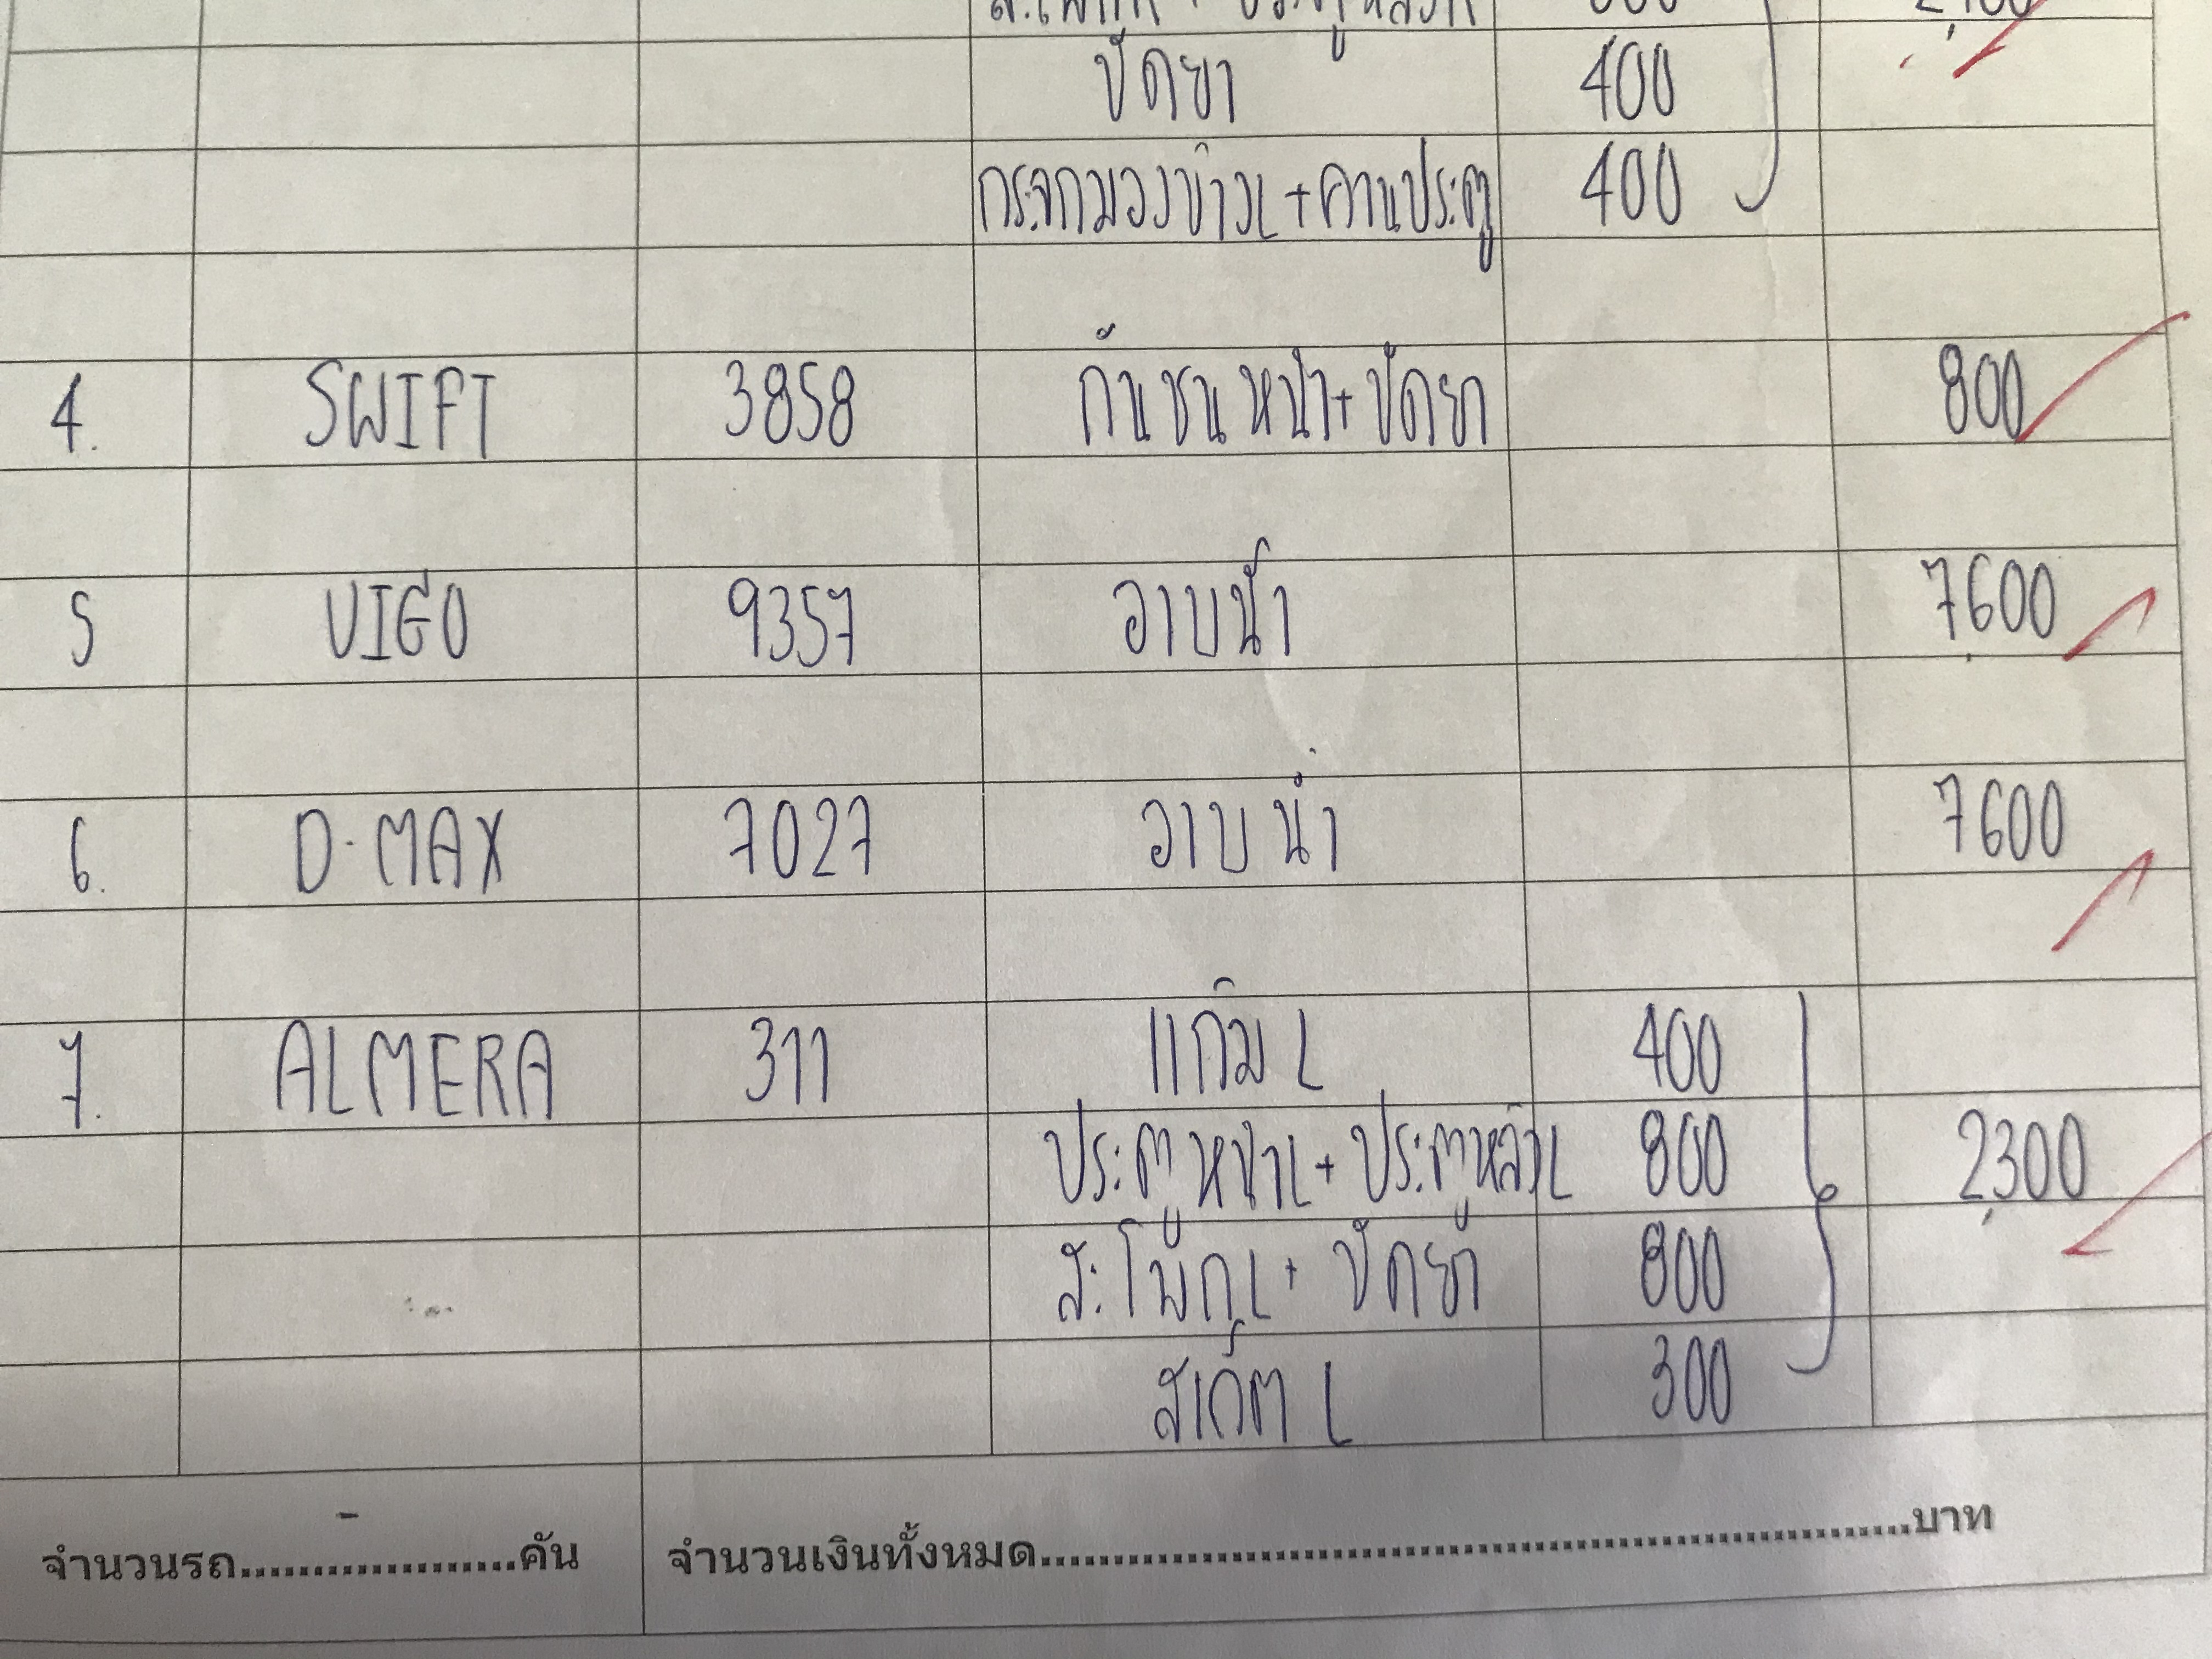 ปัดยา 400
กระจกมองข้างL+คานประตู 400
4. SWIFT 3858 กันชนหน้า+ปัดยา 800
5 VIGO 9357 อาบน้ำ 7,600
6. D-MAX 7027 อาบน้ำ 7600
7. ALMERA 311 แก้ม L 400
ประตูหน้าL+ประตูหลังL 800 2,300
สะโพกL+ ปัดยา 800
สเก็ต L 300
จำนวนรถ....................คัน จำนวนเงินทั้งหมด............................................................บาท